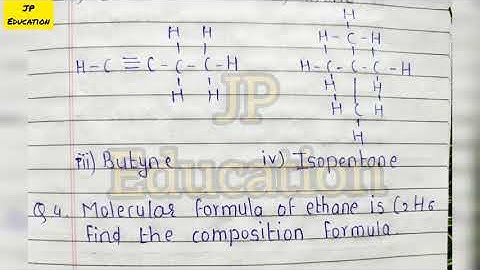 JP
Education
H H
H-C≡C-C-C-H
H H
H
H-C-H
H-C-C-C-H
H H
C
H
JP
Education
iii) Butyne iv) Isopentane
Q 4. Molecular formula of ethane is C2H6
find the composition formula